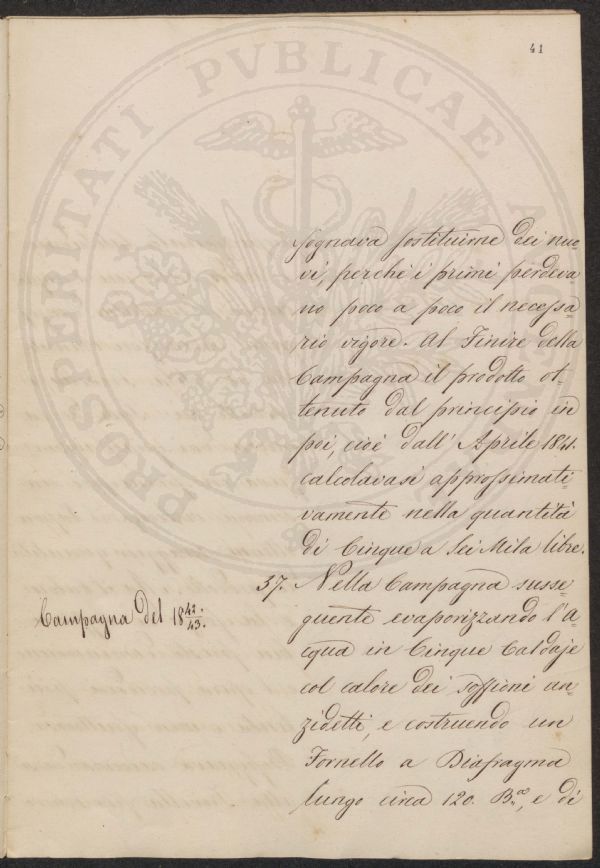 41
PROSPERITATI PVBLICAE A
sognava sostituirne dei nuo=
vi, perchè i primi perdeva
no poco a poco il necessa
rio vigore. Al Finire della
Campagna il prodotto ot=
tenuto dal principio in
poi, cioè dall'Aprile 1841.
calcolavasi approssimati
vamente nella quantità
di Cinque a Sei Mila libre.
37. Nella Campagna susse
guente evaporizzando l'A=
cqua in Cinque Caldaje
col calore dei soffioni an=
zidetti, e costruendo un
Fornello a Diafragma
lungo circa 120. B.ª, e di
Campagna del 18 42./43.